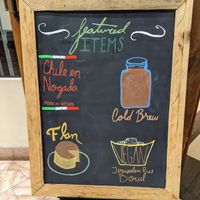 featured
ITEMS
Chile en
Nogada
PORK - VEGAN
Cold Brew
Flan
VEGAN
Jerusalem Rice
Bowl